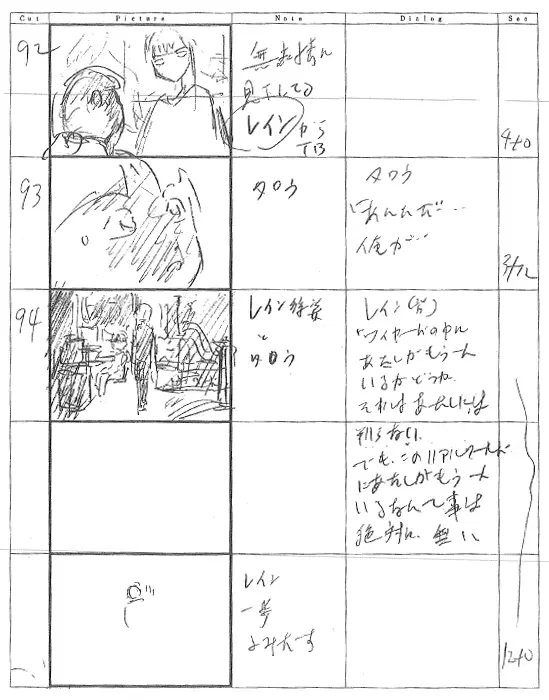 Cut Picture Note Dialog Sec
92
見下してる
レイン から
TB
4+0
93
タロウ
タロウ
「あんただ…
俺が…
3+12
94
レイン
と
タロウ
レイン
「ワイヤードの中に
あたしがもう一人
いるかどうか
それはあんたには
判らない
でも、このリアルワールド
にあたしがもう一人
いるなんて事は
絶対に、無い
レイン
一歩
ふみだす
12+0